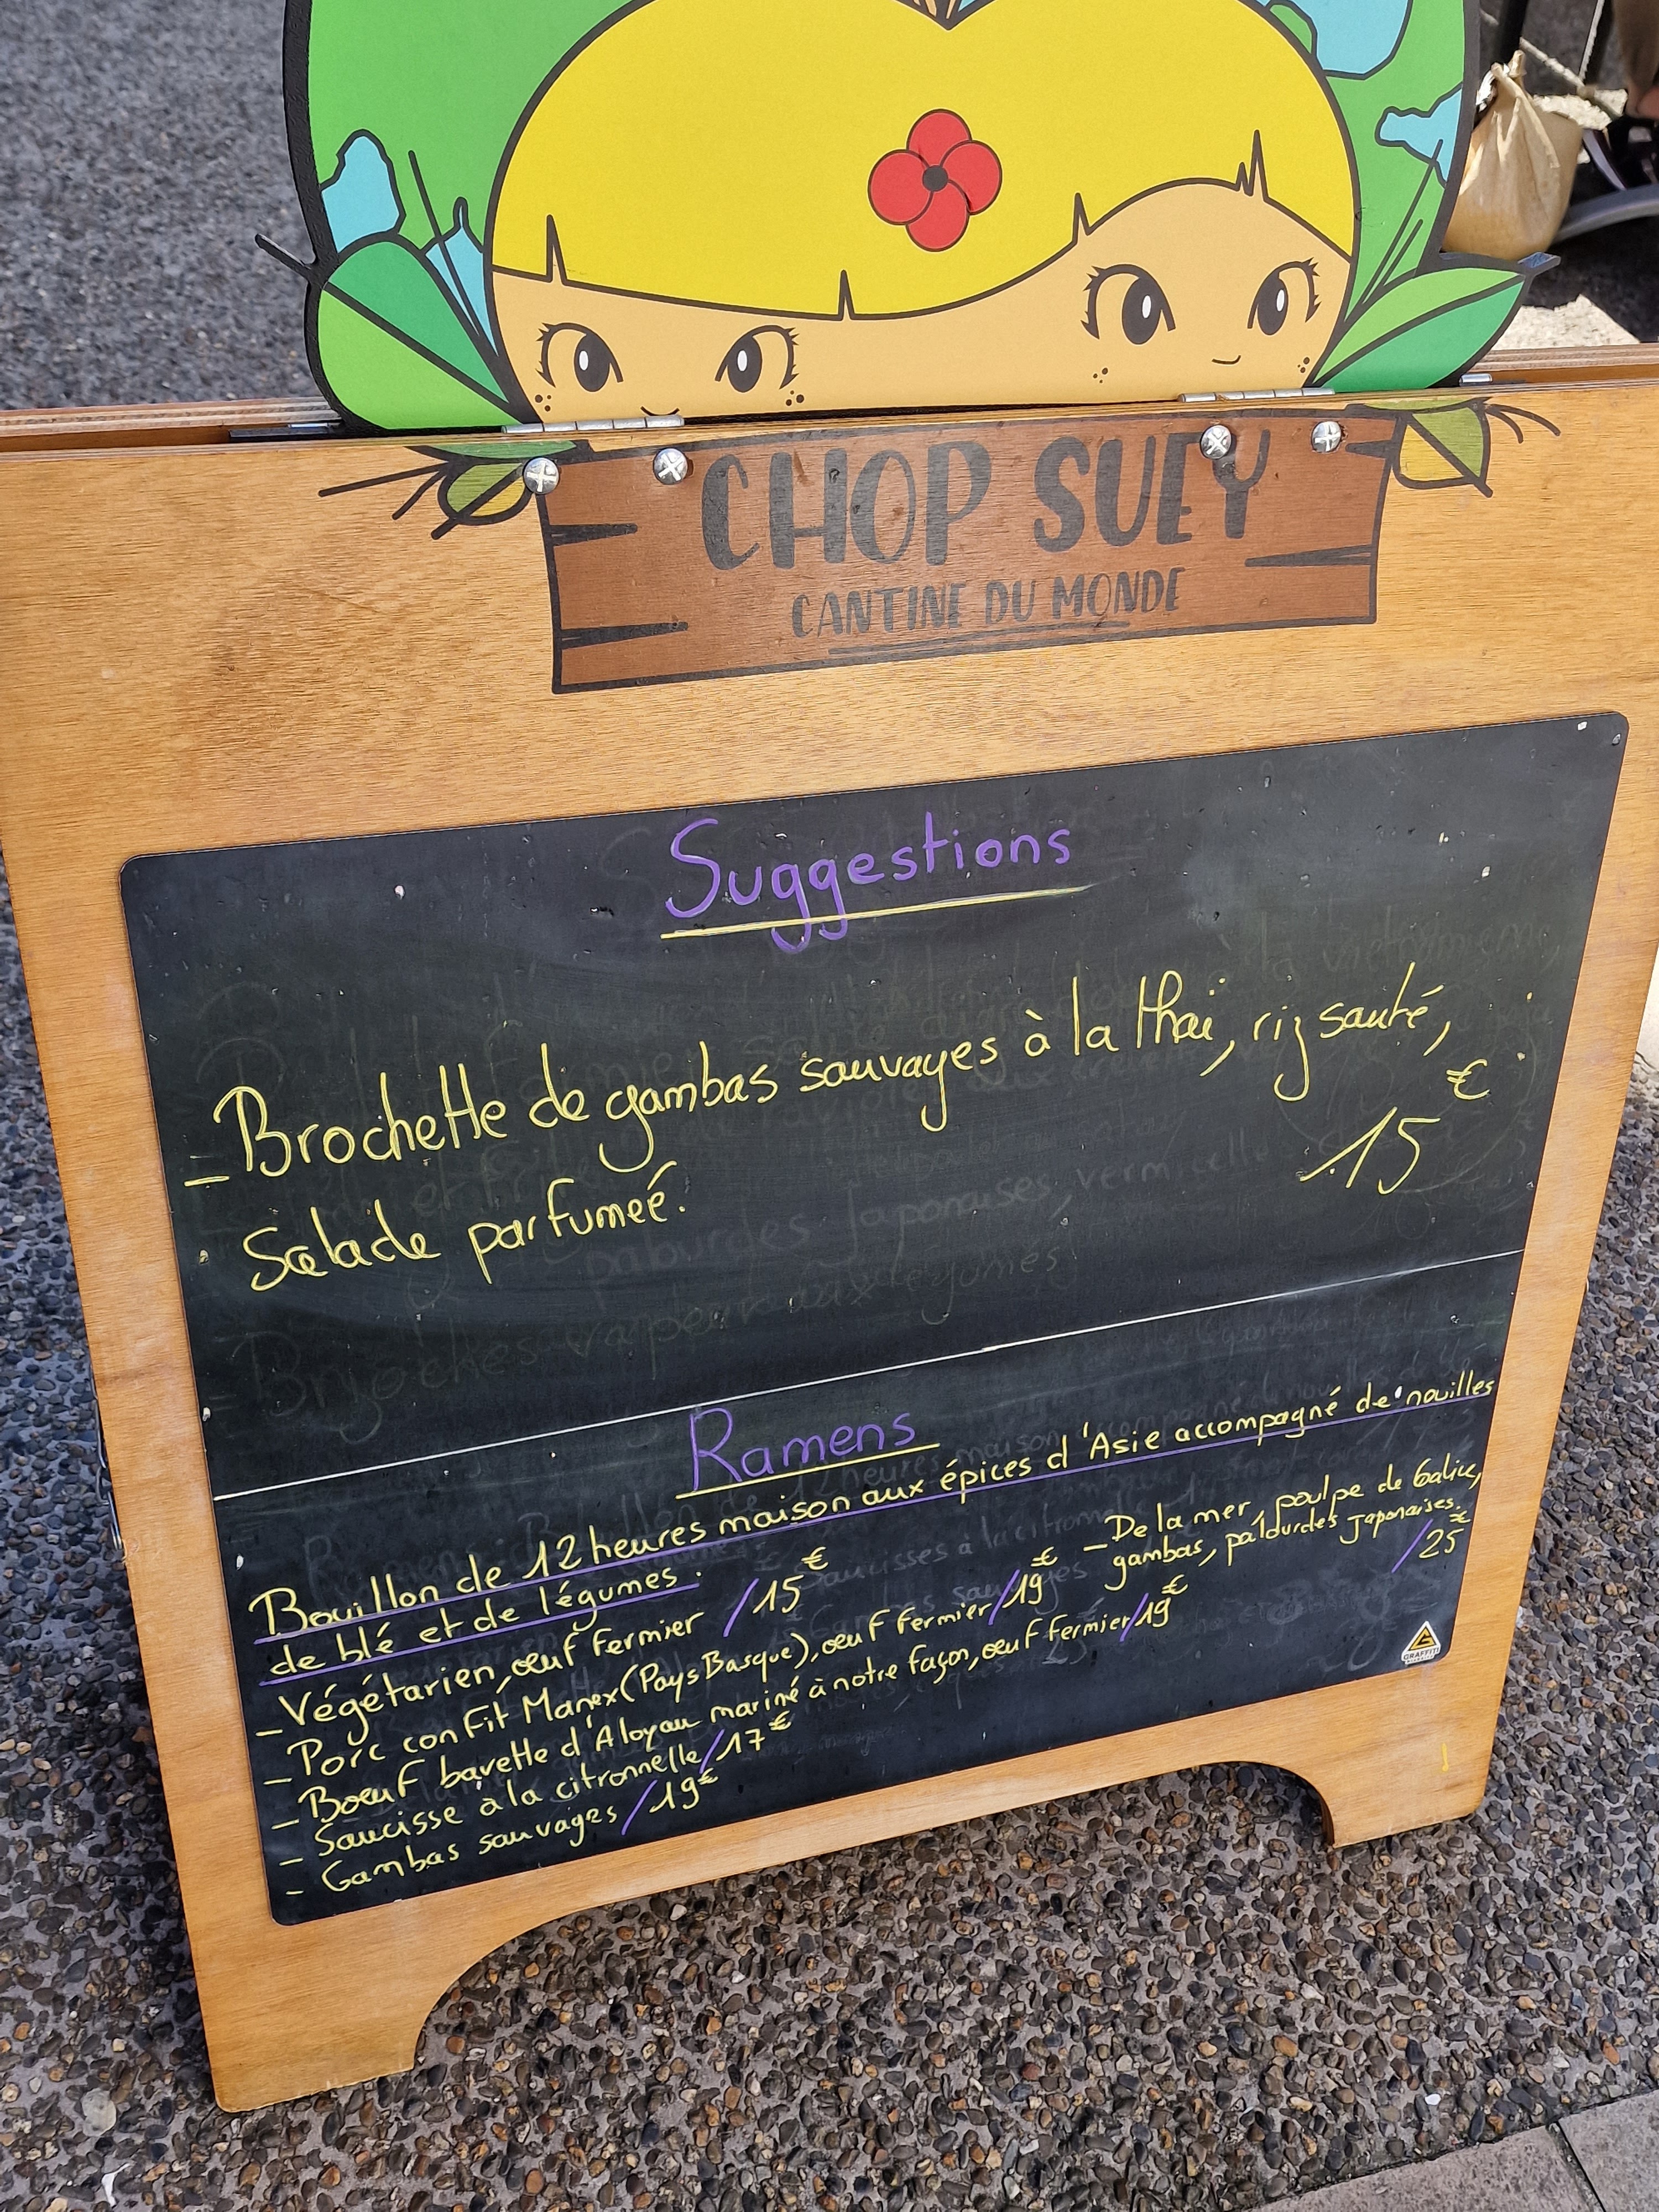 CHOP SUEY
CANTINE DU MONDE
Suggestions
- Brochette de gambas sauvages à la thaï, riz sauté,
Salade parfumeé.
15€
Ramens
Bouillon de 12 heures maison aux épices d'Asie accompagné de nouilles
de blé et de légumes.
- Végétarien, œuf fermier /15€
- Porc confit Manex (Pays Basque), œuf fermier /19€
- Boeuf bavette d'Aloyau mariné à notre façon, œuf fermier /19€
- Saucisse à la citronnelle /17€
- Gambas sauvages /19€
- De la mer, poulpe de Galice,
gambas, palourdes japonaises.
/25€
GRAFFITI